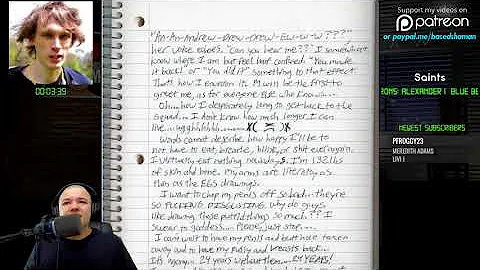 "An-An-Andrew-Drew-Drew-Ew-w-w???"
her voice echoes. "Can you hear me???" I somewhat
know where I am but feel but confused. "You made
it back! or "You did it" something to that effect.
That's how I envision it. M will be the first to
greet me, as for everyone else who knows....
Oh... how I desperately long to get back to the
Squad... I don't know how much longer I can
live....ughhhhhh......
Words cannot describe how happy I'll be to
not have to eat, breathe, blink, or shit ever again.
I virtually eat nothing nowadays. I'm 132lbs
of skin and bone. My arms are literally as
thin as the EGS drawings.
I want to chop my penis off so bad.. they're
so FUCKING DISGUSTING, why do guys
like drawing those putrid things so much??? I
swear to goddess.... Please, just stop.....
I can't wait to have my penis and butt hole taken
away and to have my pussy and breasts back...
It's agony... 24 years without them.... 24 YEARS!
00:03:39
Support my videos on
patreon
or paypal.me/basedshaman
Saints
ROMS: ALEXANDER | BLUE BE
NEWEST SUBSCRIBERS
PFROGGY23
MEREDITH ADAMS
LIVI I